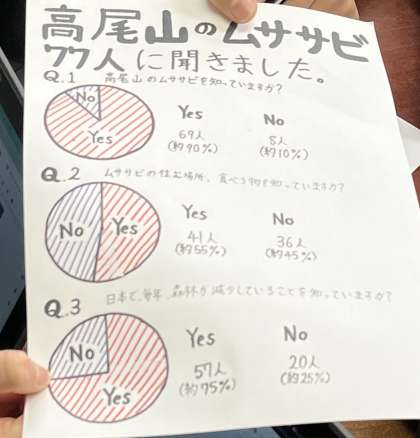 高尾山のムササビ
77人に聞きました。
Q.1 高尾山のムササビを知っていますか?
No
Yes
Yes No
69人 8人
(約90%) (約10%)
Q.2 ムササビの住む場所、食べる物を知っていますか?
No Yes
Yes No
41人 36人
(約55%) (約45%)
Q.3 日本で、毎年、森林が減少していることを知っていますか?
No
Yes
Yes No
57人 20人
(約75%) (約25%)